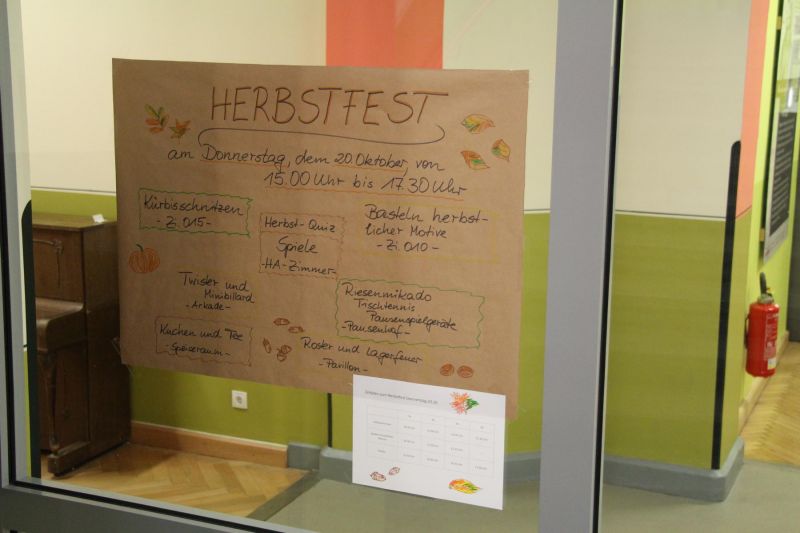 HERBSTFEST
am Donnerstag, dem 20. Oktober, von
15.00 Uhr bis 17.30 Uhr
Kürbisschnitzen
- Zi. 015 -
Herbst-Quiz
Spiele
- HA-Zimmer -
Basteln herbst-
licher Motive
- Zi. 010 -
Twister und
Minibillard
- Arkade -
Riesenmikado
Tischtennis
Pausenspielgeräte
- Pausenhof -
Kuchen und Tee
- Speiseraum -
Roster und Lagerfeuer
- Pavillon -